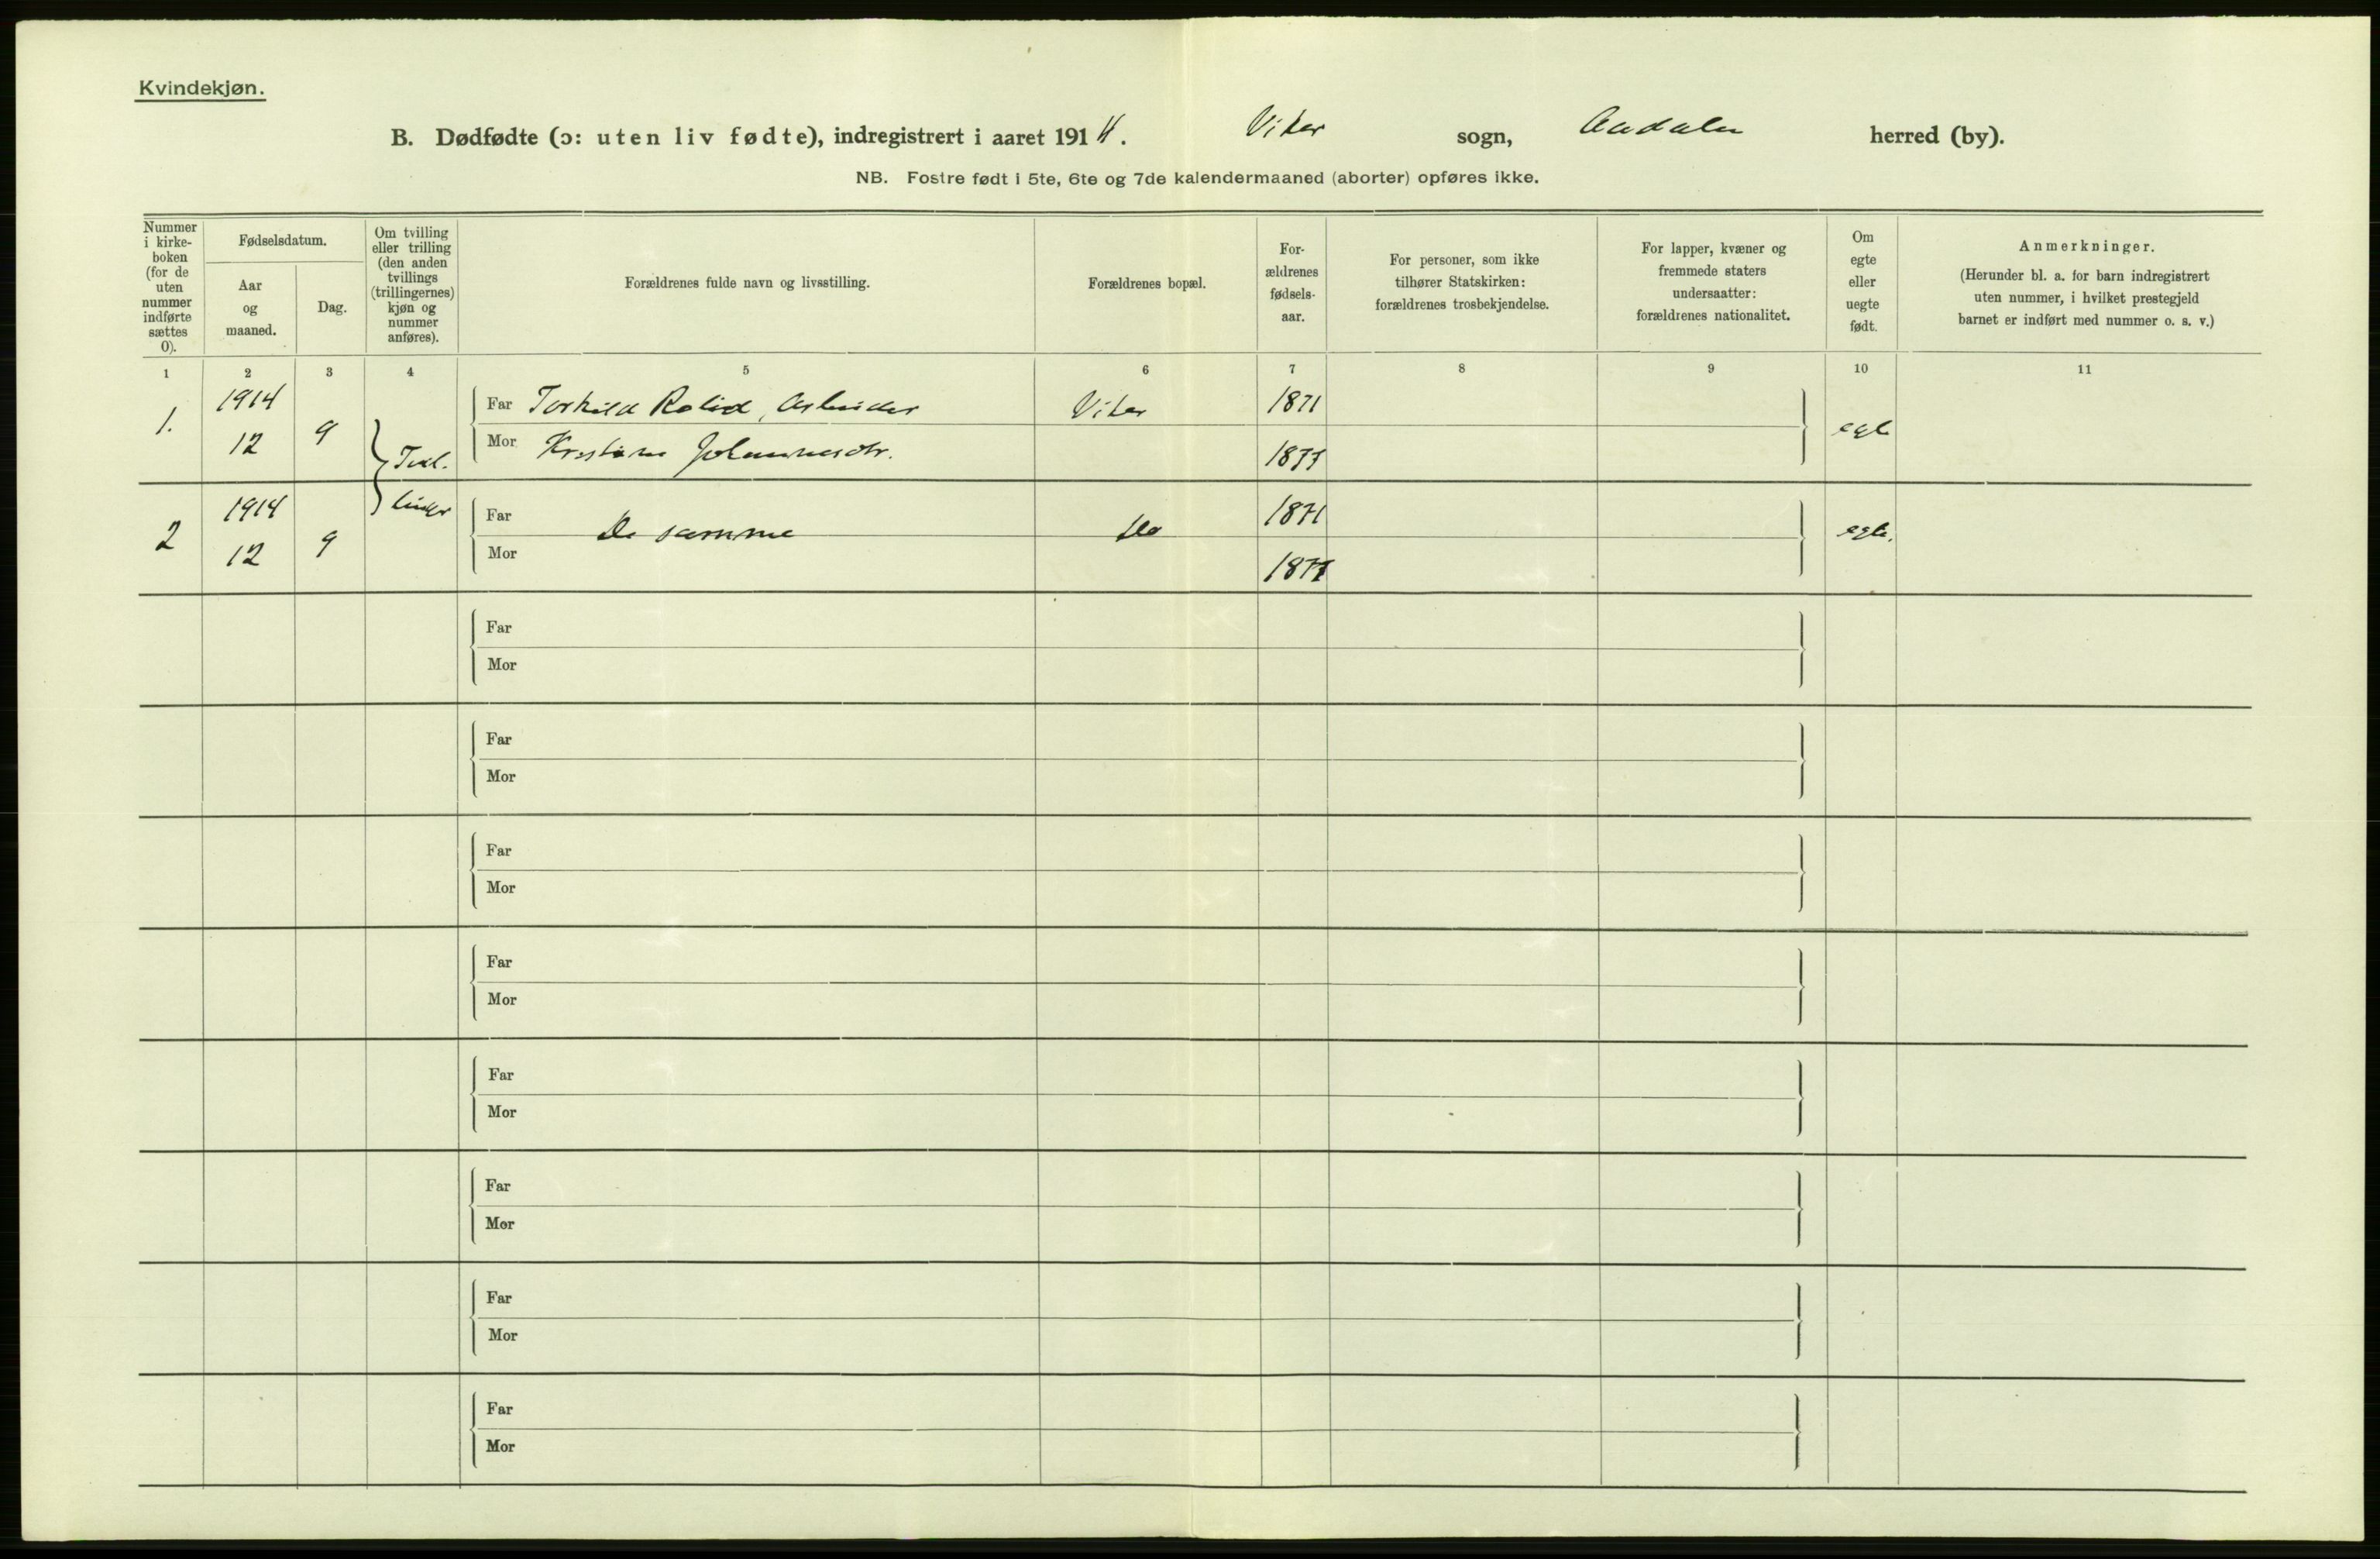 Kvindekjøn.
B. Dødfødte (ɔ: uten liv fødte), indregistrert i aaret 1914. Viker sogn, Aadalen herred (by).
NB. Fostre født i 5te, 6te og 7de kalendermaaned (aborter) opføres ikke.
Nummer
i kirke-
boken
(for de
uten
nummer
indførte
sættes
0).
Fødselsdatum.
Aar
og
maaned.
Dag.
Om tvilling
eller trilling
(den anden
tvillings
(trillingernes)
kjøn og
nummer
anføres).
Forældrenes fulde navn og livsstilling.
Forældrenes bopæl.
For-
ældrenes
fødsels-
aar.
For personer, som ikke
tilhører Statskirken:
forældrenes trosbekjendelse.
For lapper, kvæner og
fremmede staters
undersaatter:
forældrenes nationalitet.
Om
egte
eller
uegte
født.
Anmerkninger.
(Herunder bl. a. for barn indregistrert
uten nummer, i hvilket prestegjeld
barnet er indført med nummer o. s. v.)
1 2 3 4 5 6 7 8 9 10 11
1. 1914 12 9 Tvil-
Far Torkild Rolid, Arbeider Viker 1871
Mor Kristine Johannesdtr. 1877 egte
2 1914 12 9 linger
Far De samme do 1871
Mor 1877 egte.
Far
Mor
Far
Mor
Far
Mor
Far
Mor
Far
Mor
Far
Mor
Far
Mor
Far
Mor